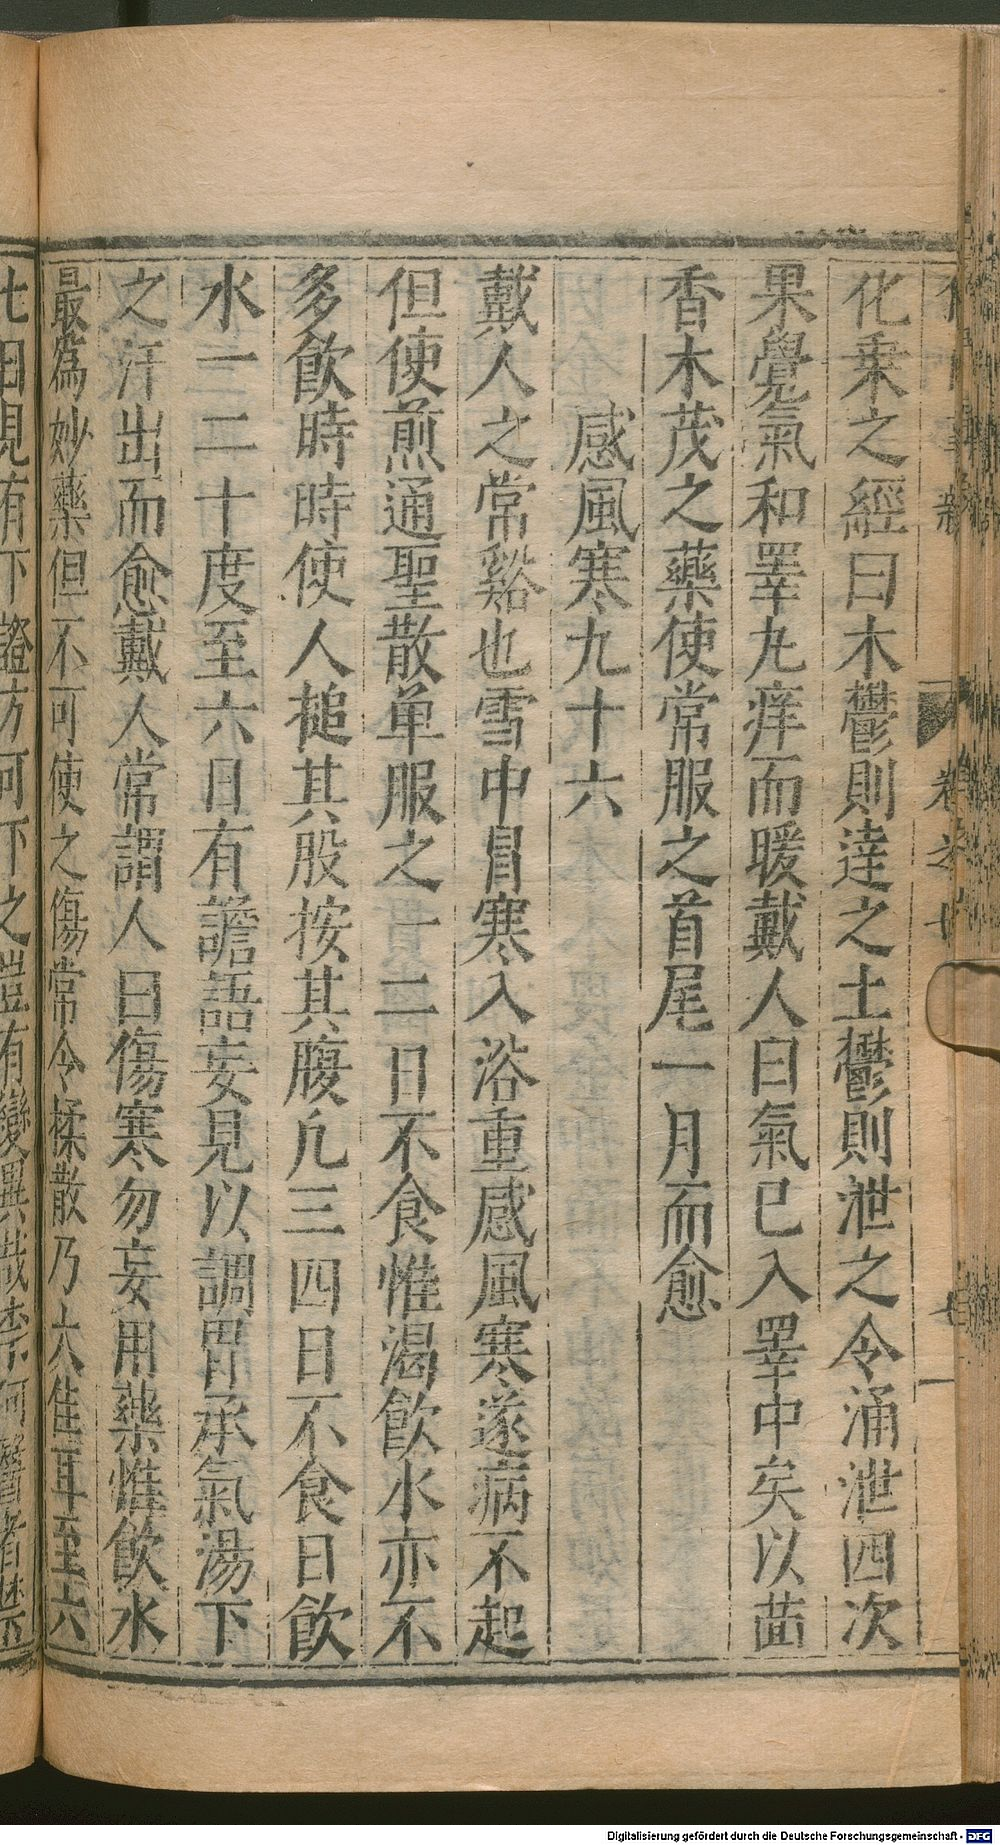 化乗之經曰木鬱則達之土鬱則泄之令涌泄四次
果覺氣和睪丸痒而暖戴人曰氣已入睪中矣以茴
香木茂之藥使常服之首尾一月而愈
感風寒九十六
戴人之常谿也雪中冒寒入浴重感風寒遂病不起
但使煎通聖散单服之一二日不食惟渴飲水亦不
多飲時時使人搥其股按其腹凢三四日不食日飲
水一二十度至六日有譫語妄見以調胃承氣湯下
之汗出而愈戴人常謂人曰傷寒勿妄用藥惟飲水
最為妙藥但不可使之傷常令揉散乃大佳耳至六
七日見有下證方可下之豈有變異哉柰何醫者禁
卷之
Digitalisierung gefördert durch die Deutsche Forschungsgemeinschaft - DFG